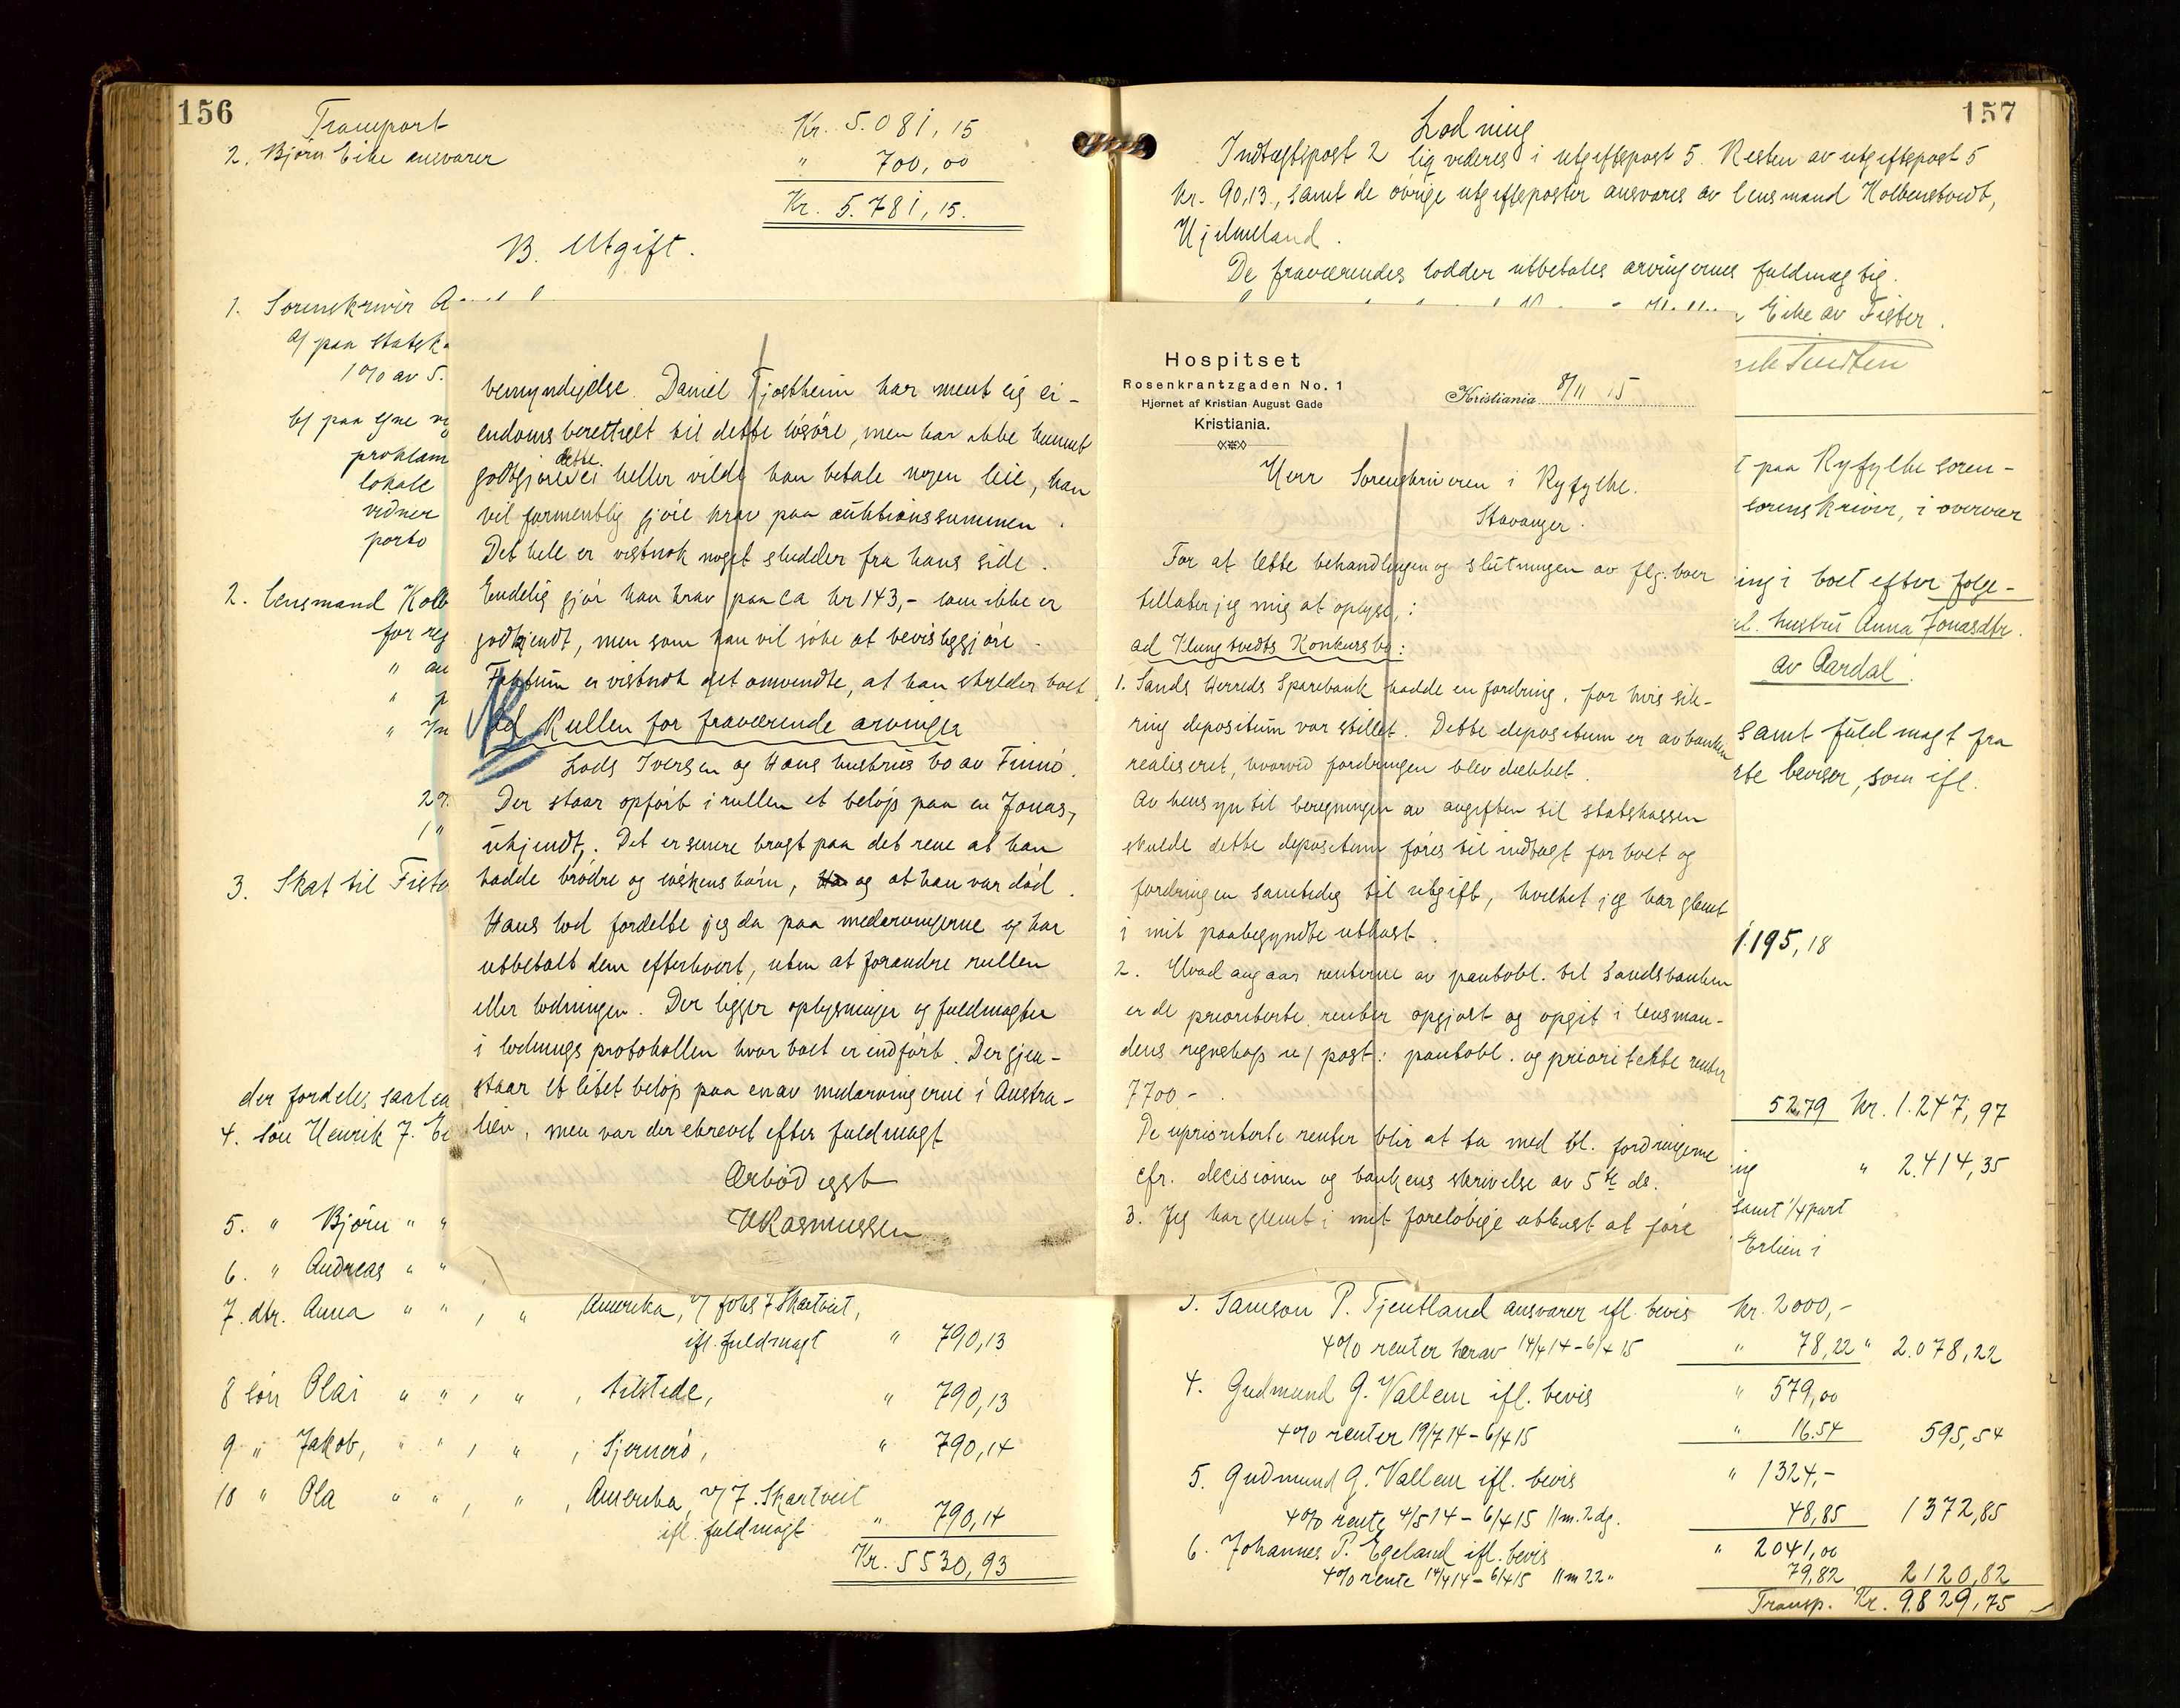 156
Transport Kr. 5.081,15
2. Bjørn Eike ansvarer " 700,00
Kr. 5.781,15.
B. Utgift.
1. Sorenskriver A
a/ paa statsk
1% av 5.
b/ paa egne ve
proklam
lokale
vidner
porto
2. lensmand Kolb
for reg
" au
" p
"
2
1 "
3. Skat til Fiste
der fordeles saalea
4. søn Henrik J. Ei
5. " Bjørn " "
6. " Andreas " "
7. dtr. Anna " " , " , Amerika, v/ Johs J Skartveit,
ifl. fuldmagt " 790,13
8 søn Olai " " , " , tilstede, " 790,13
9 " Jakob, " " , " , Sjernerø, " 790,14
10 " Ola " " , " , Amerika, v/ J. Skartveit
ifl. fuldmagt " 790,14
Kr. 5530,93
bemyndigelse. Daniel Tjøstheim har ment sig ei-
endomsberettiget til dette løsøre, men har ikke kunnet
godtgjøre dette. Ei heller vilde han betale nogen leie, han
vil formentlig gjøre krav paa auktionssummen.
Det hele er vistnok noget sludder fra hans side.
Endelig gjør han krav paa ca kr 143,- som ikke er
godkjendt, men som han vil søke at bevisliggjøre.
Faktum er vistnok det omvendte, at han skylder boet.
NB
ad Rullen for fraværende arvinger
Lods Iversen og Hans hustrus bo av Finnø.
Der staar opført i rullen et beløp paa en Jonas,
ukjendt,. Det er senere bragt paa det rene at han
hadde brødre og søskensbørn, Ha og at han var død.
Hans lod fordelte jeg da paa medarvingerne og har
utbetalt dem efterhvert, uten at forandre rullen
eller lodningen. Der ligger oplysninger og fuldmagter
i lodningsprotokollen hvor boet er indført. Der gjen-
staar et litet beløp paa en av medarvingerne i Austra-
lien, men var der skrevet efter fuldmagt
Ærbødigst
VRasmussen
157
Lodning
Indtægtspost 2 likvideres i utgiftspost 5. Resten av utgiftspost 5
kr. 90,13, samt de øvrige utgiftsposter ansvares av lensmand Kolbenstvedt,
Hjelmeland.
De fraværendes lodder utbetales arvingernes fuldmægtig.
Eike av Fister.
Hospitset
Rosenkrantzgaden No. 1
Hjørnet af Kristian August Gade
Kristiania.
Kristiania 8/11 15
Herr Sorenskriveren i Ryfylke.
Stavanger.
For at lette behandlingen og slutningen av flg. boer
tillater jeg mig at oplyse,:
ad Klungtvedts Konkursbo:
1. Sands Herreds Sparebank hadde en fordring, for hvis sik-
ring depositum var stillet. Dette depositum er av banken
realiseret, hvorved fordringen blev dækket.
Av hensyn til beregningen av avgiften til statskassen
skulde dette depositum føres til indtægt for boet og
fordringen samtidig til utgift, hvilket jeg har glemt
i mit paabegyndte utkast.
2. Hvad angaar renterne av pantobl. til Sandsbanken
er de prioriterte renter opgjort og opgit i lensman-
dens regnskap u/ post: pantobl. og prioritette renter
7700 -.
De upriorterte renter blir at ta med bl. fordringerne
cfr. decisionen og bankens skrivelse av 5te ds.
3. Jeg har glemt i mit foreløbige utkast at føre
t paa Ryfylke soren-
sorenskriver, i overvær
ing i boet efter følge-
hustru Anna Jonasdtr.
av Aardal.
samt fuldmagt fra
te beviser, som ifl.
1.195,18
52,79 Kr. 1.247,97
ing " 2.414,35
samt 1/4 part
Erlien i
3. Samson P. Tjentland ansvarer ifl. bevis kr. 2000,-
4% renter herav 14/4 14 - 6/4 15 " 78,22 " 2.078,22
4. Gudmund G. Vallem ifl. bevis " 579,00
4% renter 19/7 14 - 6/4 15 " 16.54 595,54
5. Gudmund G. Vallem ifl. bevis " 1324,-
4% rente 4/5 14 - 6/4 15 11 m. 2 dg. 48,85 1372,85
6. Johannes P. Egeland ifl. bevis " 2041,00
4% rente 14/4 14 - 6/4 15 11 m 22 " 79,82 2120,82
Transp. Kr. 9.829,75